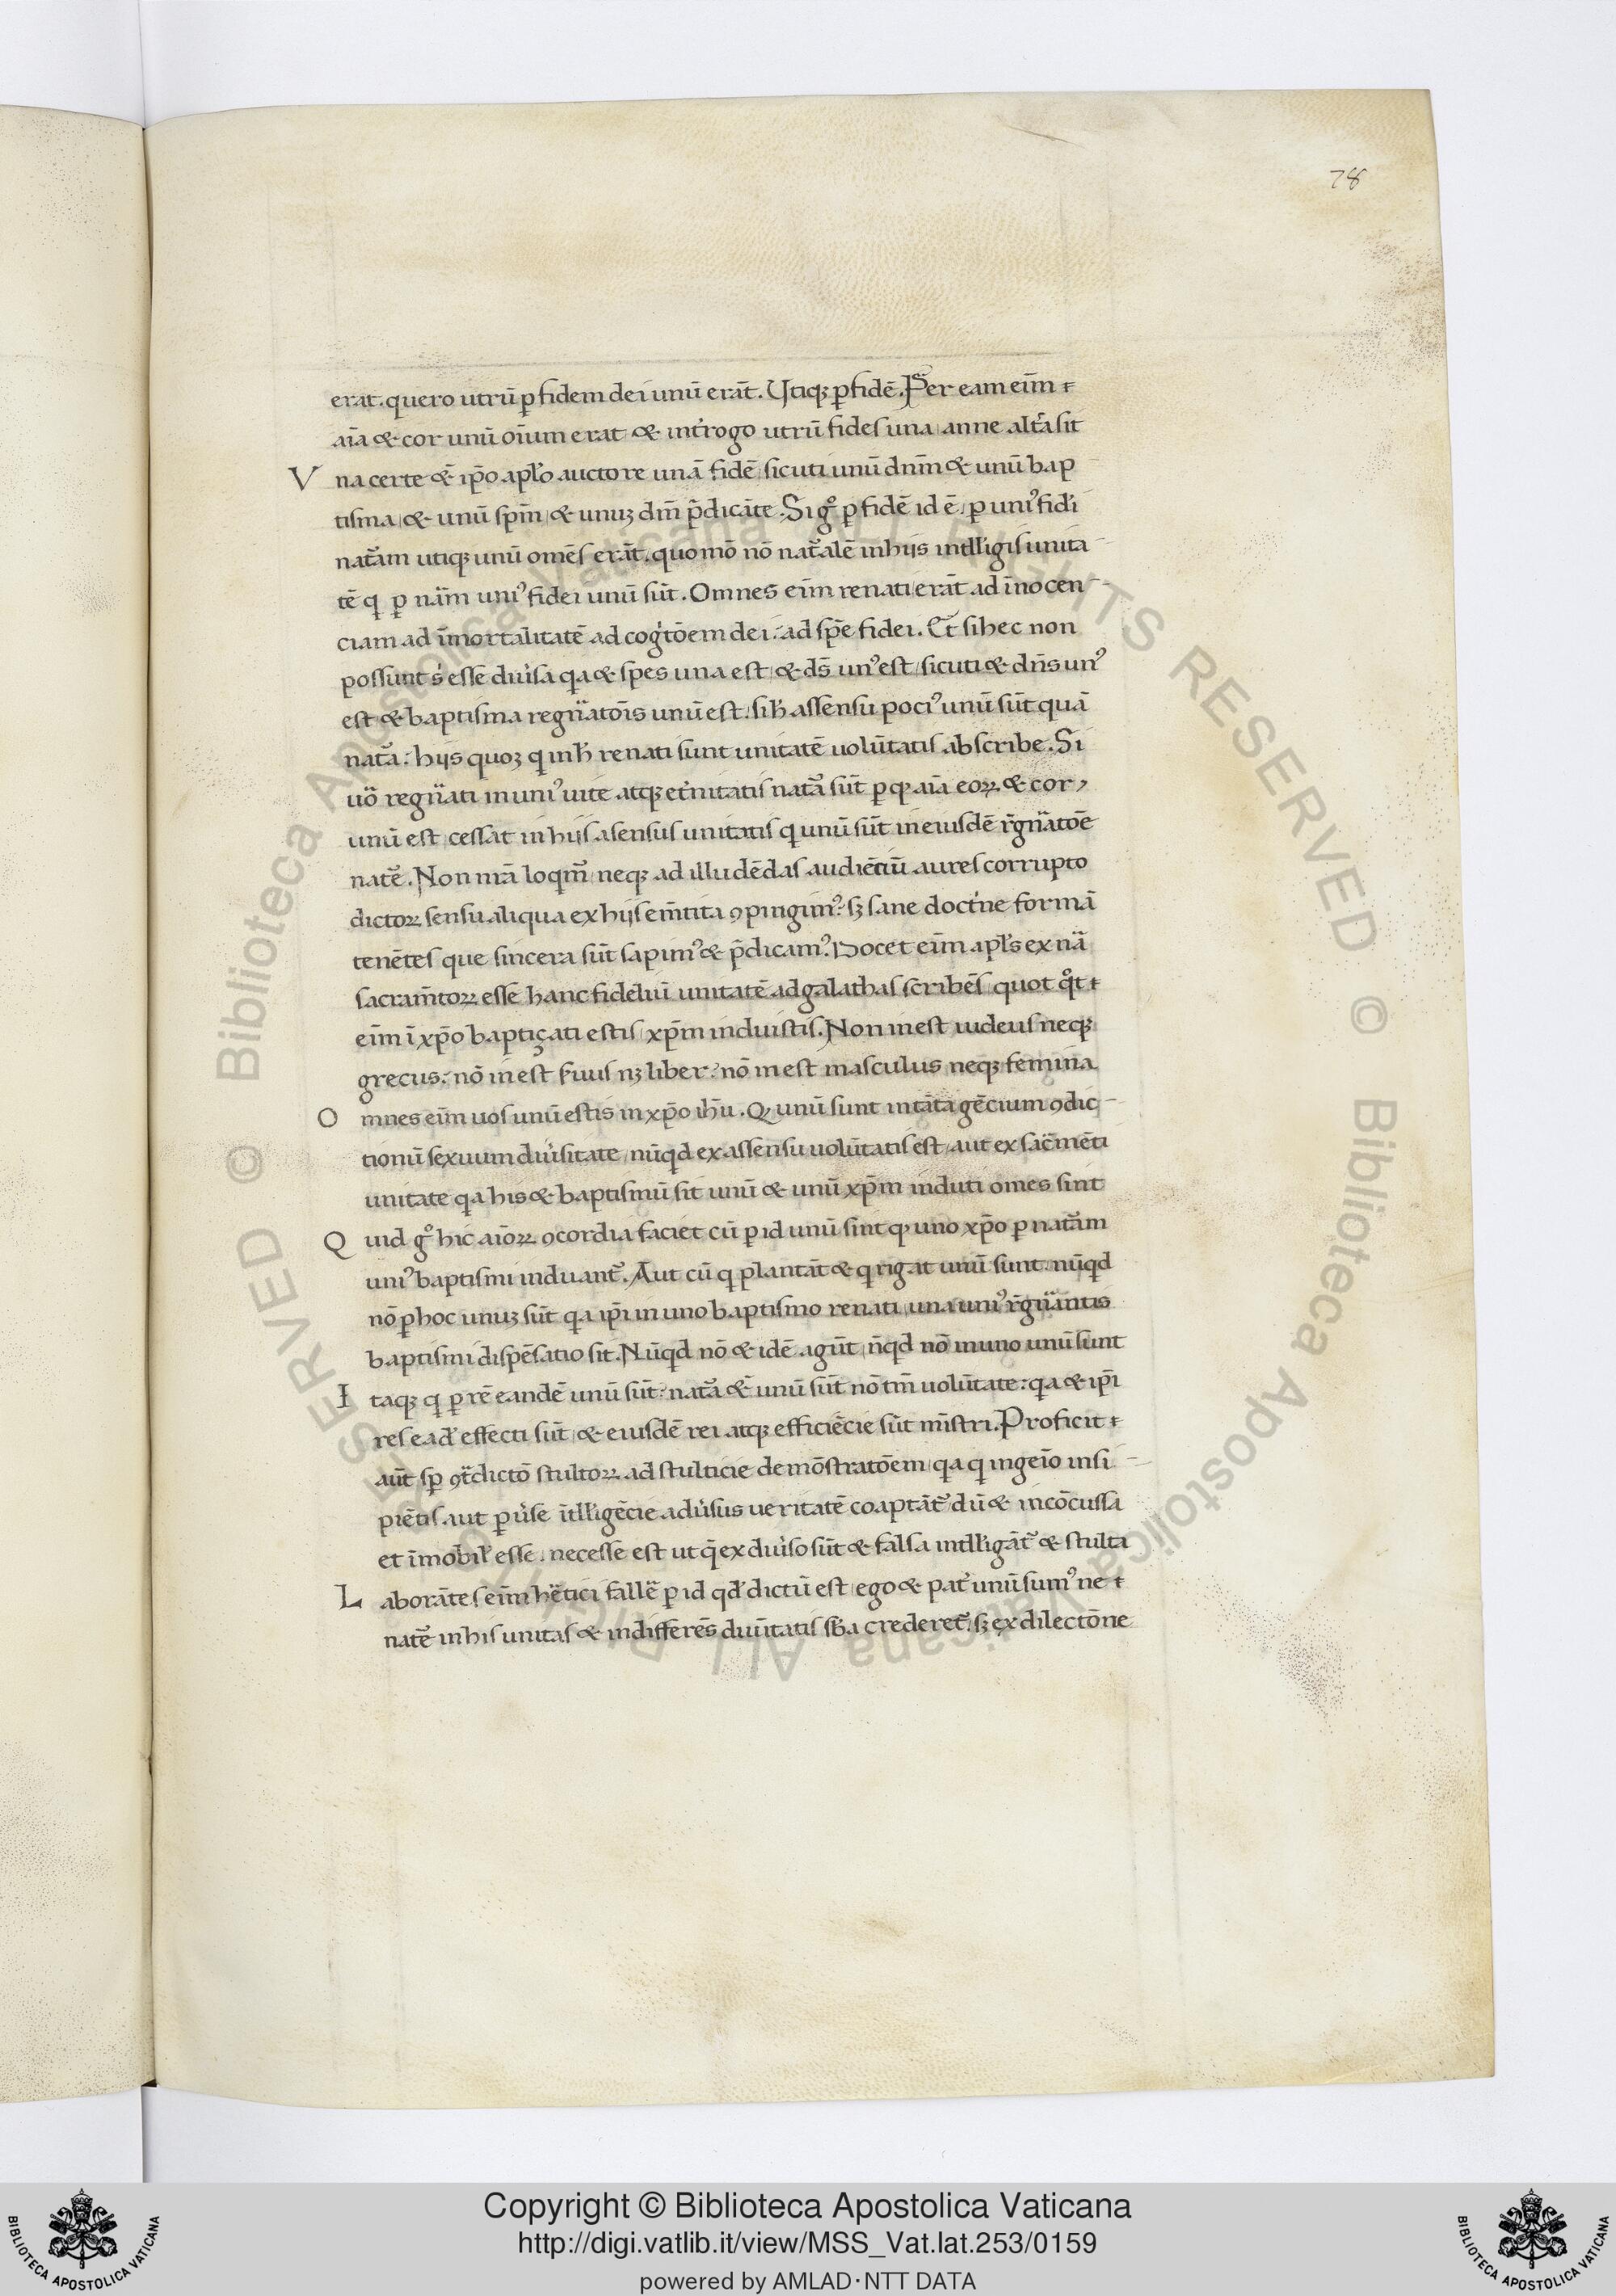 78
erāt. quero utrū ꝑ fidem dei unū erāt. Vtiqꝫ ꝑ fidē. Per eam eīm
aīa & cor unū oīum erat & int̄rogo utrū fides una anne alt̄a sit
Vna certe &̄ ip̄o apl̄o auctore unā fidē sicuti unū dnm̄ & unū bap
tisma & unū spm̄ & unuꝫ dm̄ p̄dicāte. Si gͦ ꝑ fidē id ē ꝑ uniꝰ fid̓i
nat̄am utiqꝫ unū om̄es erāt. quomō nō nat̄alē in hiis intll̓igis unita
tē q ꝑ nām̄ uniꝰ fidei unū sūt. Omnes eīm renati erāt ad īnocen
ciam ad īmortalitatē ad cog̓tōem dei. ad spē fidei. Et si hec non
possunt s̓ esse diu̓sa qa & spes una est & ds̄ unꝰ est sicuti & dn̄s unꝰ
est & baptisma regn̄atōis unū est. si h̓ assensu pociꝰ unū sūt quā
nat̄a: hiis quoꝫ q in h̓ renati sunt unitatē uolūtatis abscribe. Si
uō regn̄ati in uniꝰ uite atqꝫ et̓nitatis nat̄a sūt ꝑ qꝫ aīa eoꝝ & cor
unū est cessat in hiis asensus unitatis q unū sūt in eiusdē r̄gn̄atōe
nat̄e. Non nr̄a loqm̄ neqꝫ ad illudēdas audiētiū aures corrupto
dictoꝝ sensu aliqua ex hiis em̄tita ꝯpingimꝰ: sꝫ sane doct̓ne formā
tenētes que sincera sūt sapimꝰ & p̄dicamꝰ. Docet eīm apl̓s ex nā
sacram̄toꝝ esse hanc fideliū unitatē ad galathas scribēs quot qͦt
eīm ī xp̄o baptiçati estis xpm̄ induistis. Non inest iudeus neqꝫ
grecus: nō inest s̓uus nꝫ liber: nō inest masculus neqꝫ femina
Omnes eīm uos unū estis in xp̄o ih̄u. Qꝫ unū sunt in tāta gēcium ꝯdic
tionū sexuum diu̓sitate nūqd ex assensu uolūtatis est aut ex sac̄mēti
unitate qa his & baptismū sit unū & unū xpm̄ induti om̄es sint
Quid gͦ hic aīoꝝ ꝯcordia faciet cū ꝑ id unū sint qꝫ uno xp̄o ꝑ nat̄am
uniꝰ baptismi induant̄. Aut cū q plantāt & q rigat unū sunt nūqd
nō ꝑ hoc unuꝫ sūt qa ip̄i in uno baptismo renati una uniꝰ r̄gn̄antis
baptismi dispēsatio sit. Nūqd nō & idē agūt nq̄d nō in uno unū sunt
Itaqꝫ q ꝑ rē eandē unū sūt: nat̄a &̄ unū sūt nō tm̄ uolūtate: qa & ip̄i
res ead̓ effecti sūt & eiusdē rei atqꝫ efficiēcie sūt mīstri. Proficit
aūt sꝑ ꝯt̄dictō stultoꝝ ad stulticie demōstratōem qa q ingeīo insi
piētis aut ꝑu̓se ītll̓igēcie adu̓sus ueritatē coaptāt̄ dū & incōcussa
et īmobil̓ esse necesse est ut qē ex diu̓so sūt & falsa intll̓igāt̄ & stulta
Laborātes eīm h̓etici fallē ꝑ id qd̓ dictū est ego & pat̓ unū sumꝰ ne
nat̄e in his unitas & indifferēs diuītatis sb̄a crederet̄. sꝫ ex dilectōne
Copyright © Biblioteca Apostolica Vaticana
http://digi.vatlib.it/view/MSS_Vat.lat.253/0159
powered by AMLAD·NTT DATA
BIBLIOTECA APOSTOLICA VATICANA
BIBLIOTECA APOSTOLICA VATICANA
© Biblioteca Apostolica Vaticana ALL RIGHTS RESERVED
© Biblioteca Apostolica Vaticana ALL RIGHTS RESERVED